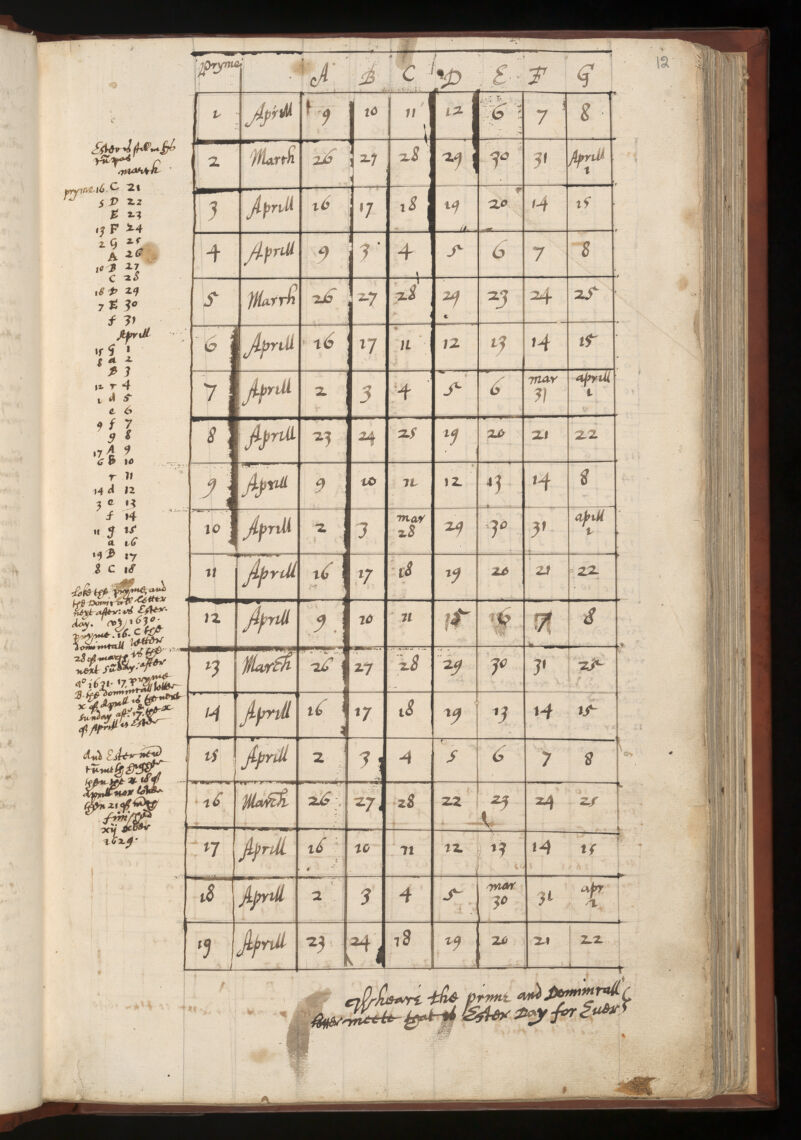 12
Pryme A B C D E F G
1 Aprill 9 10 11 12 6 7 8
2 March 26 27 28 29 30 31 Aprill 1
3 Aprill 16 17 18 19 20 14 15
4 Aprill 9 3 4 5 6 7 8
5 March 26 27 28 29 23 24 25
6 Aprill 16 17 11 12 13 14 15
7 Aprill 2 3 4 5 6 mar 31 aprill 1
8 Aprill 23 24 25 19 20 21 22
9 Aprill 9 10 11 12 13 14 8
10 Aprill 2 3 mar 28 29 30 31 aprill 1
11 Aprill 16 17 18 19 20 21 22
12 Aprill 9 10 11 15 16 7 8
13 March 26 27 28 29 30 31 25
14 Aprill 16 17 18 19 13 14 15
15 Aprill 2 3 4 5 6 7 8
16 March 26 27 28 22 23 24 25
17 Aprill 16 10 11 12 13 14 15
18 Aprill 2 3 4 5 mar 30 31 apr 1
19 Aprill 23 24 18 19 20 21 22
Wheare the prime and Dominicall
letter meete that is Ester Day for Ever
Ester is still
march
pryme 16 C 21
5 D 22
E 23
13 F 24
2 G 25
A 26
10 B 27
C 28
18 D 29
7 E 30
f 31
Aprill
15 g 1
8 a 2
B 3
12 c 4
1 d 5
e 6
9 f 7
g 8
17 A 9
6 B 10
c 11
14 d 12
3 e 13
f 14
11 g 15
a 16
19 B 17
8 C 18
Loke the pryme, and
the Dominicall Letter
next after: is Ester
day. 1630.
pryme. 16. C the
dominicall letter
28 of march is the
next Sunday after
1631. 17 pryme
B the dominicall letter
x of Aprill is the next
Sunday aft. 17. the x
of Aprill is Ester
And Ester never
then the 18 of
Aprill nor
then 21 of
xij
1629.